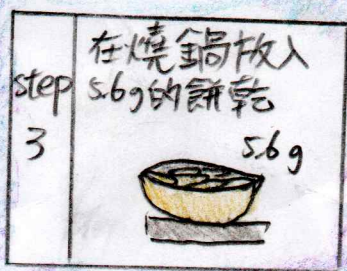 step
3
在燒鍋放入
5.6g的餅乾
5.6g